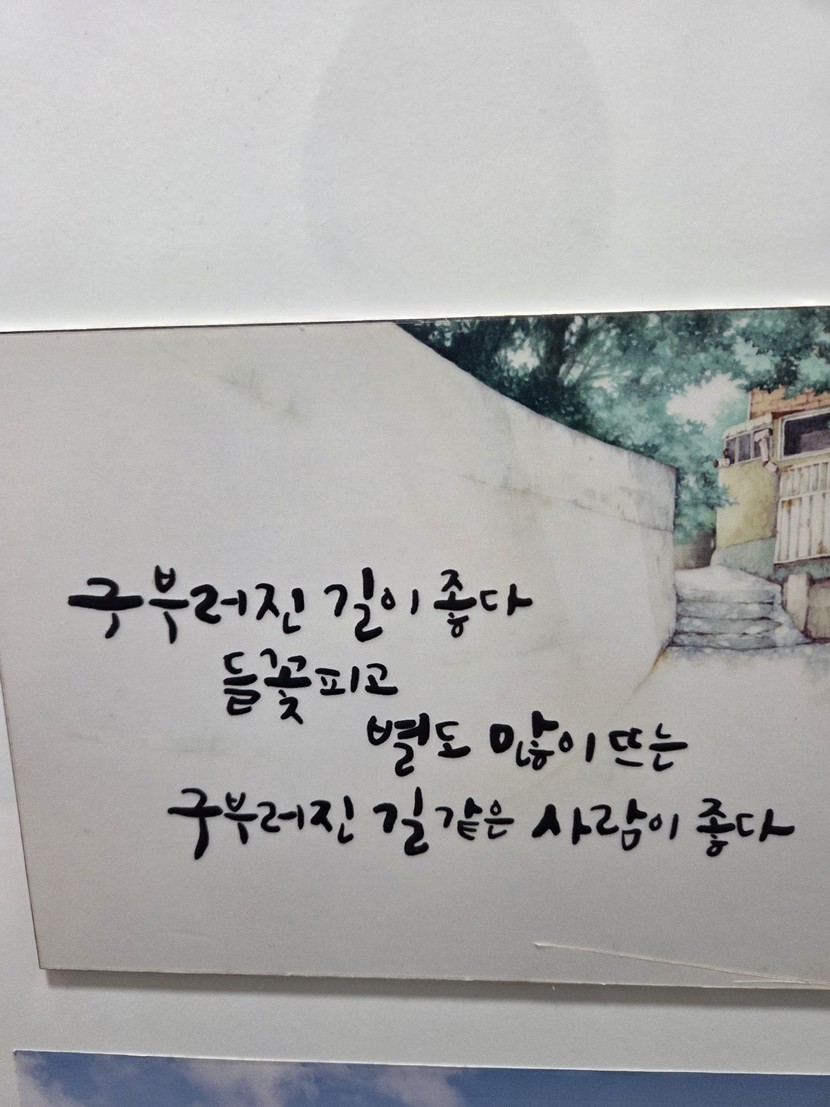 구부러진 길이 좋다
들꽃피고
별도 많이 뜨는
구부러진 길 같은 사람이 좋다